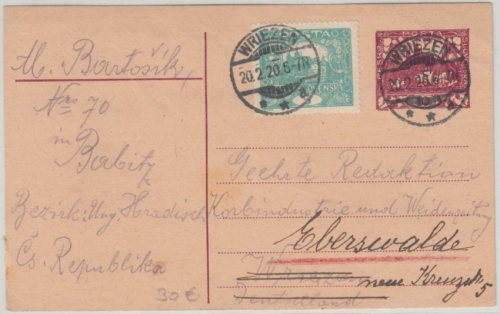 M. Bartošík,
Nro 70
in
Babitz
Bezirk: Ung. Hradisch
Čs. Republika
30 €
WRIEZEN
20.2.20.6-7N
a
WRIEZEN
POSTA
Geehrte Redaktion
Korbindustrie und Weidenzeitung
Eberswalde
Wriezen
neue Kreuzstr 5
Deutschland